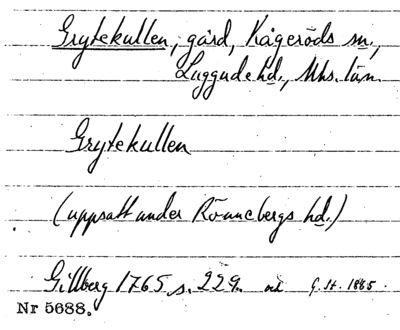 Grytekullen, gård, Kågeröds sn.,
Luggude hd., Mhs. län
Grytekullen
(uppsatt under Rönnebergs hd.)
Gillberg 1765 s. 229. G. St. 1885.
Nr 5688.